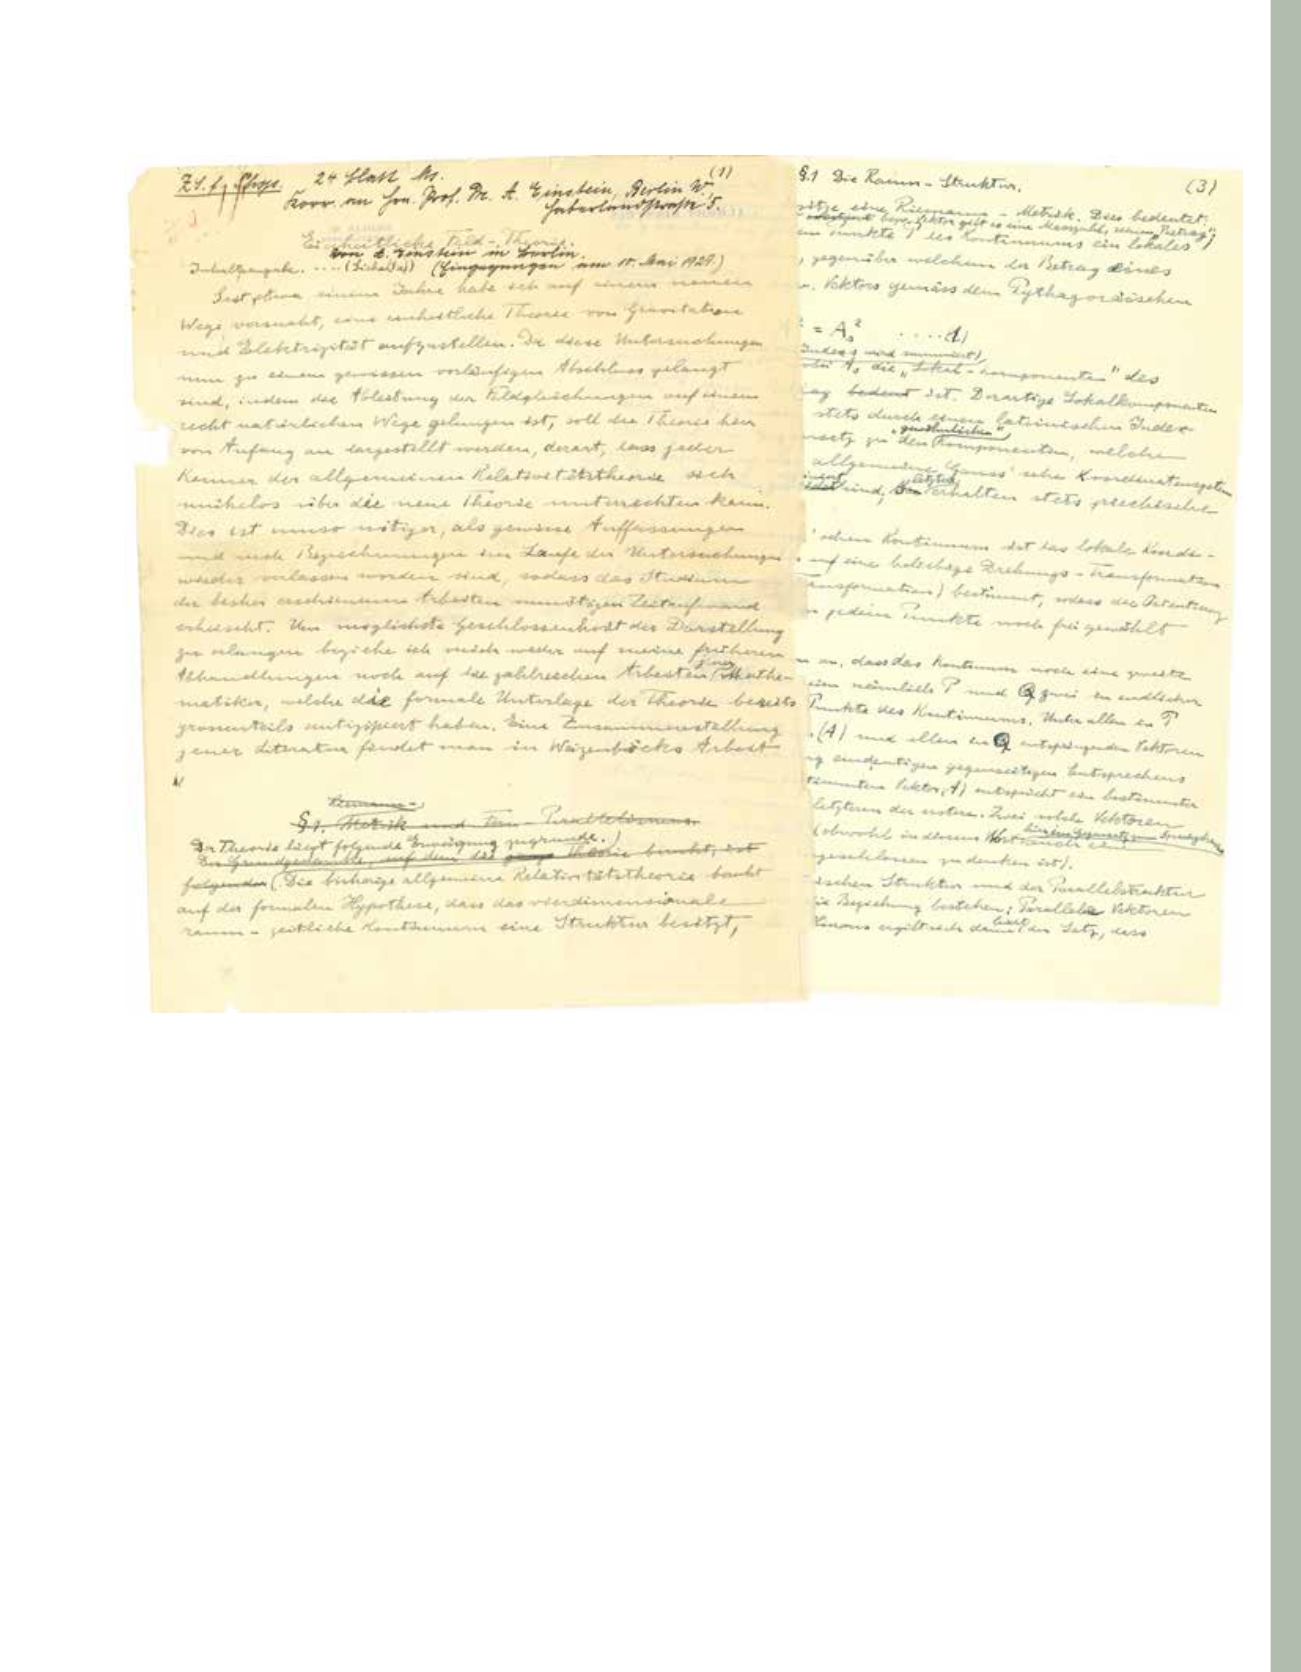 Zs. f. Phys. 24 Blatt Ms. (1)
Korr. an Hrn. Prof. Dr. A. Einstein, Berlin W.,
Haberlandstraße 5.
Einheitliche Feld-Theorie.
Von A. Einstein in Berlin.
Inhaltsangabe. .... (Eingegangen am 10. Mai 1929)
Seit etwa einem Jahre habe ich auf einem neuen
Wege versucht, eine einheitliche Theorie von Gravitation
und Elektrizität aufzustellen. Da diese Untersuchungen
nun zu einem gewissen vorläufigen Abschluss gelangt
sind, indem die Ableitung der Feldgleichungen auf einem
recht natürlichen Wege gelungen ist, soll die Theorie hier
von Anfang an dargestellt werden, derart, dass jeder
Kenner der allgemeinen Relativitätstheorie sich
mühelos über die neue Theorie unterrichten kann.
Dies ist umso nötiger, als gewisse Auffassungen
und auch Bezeichnungen im Laufe der Untersuchungen
wieder verlassen worden sind, sodass das Studium
der bisher erschienenen Arbeiten unnötigen Zeitaufwand
erheischt. Um möglichste Geschlossenheit der Darstellung
zu erlangen beziehe ich mich weder auf meine früheren
Abhandlungen noch auf die zahlreichen Arbeiten Mathe-
matiker, welche die formale Unterlage der Theorie bereits
grossenteils antizipiert haben. Eine Zusammenstellung
jener Literatur findet man in Weizenböcks Arbeit
Riemann-
§1. Metrik und Fern-Parallelismus.
Der Theorie liegt folgende Erwägung zugrunde.
Der Grundgedanke, auf dem die ganze Theorie beruht, ist
folgender (Die bisherige allgemeine Relativitätstheorie baut
auf der formalen Hypothese, dass das vierdimensionale
raum-zeitliche Kontinuum eine Struktur besitzt,
§.1 Die Raum-Struktur. (3)
eine Riemann-Metrik. Dies bedeutet:
Vektor gibt es eine Masszahl, seinen "Betrag";
Punkte P des Kontinuums ein lokales
, gegenüber welchem der Betrag eines
Vektors gemäss dem Pythagoräischen
= A_s² ....(1)
Index s wird summiert)
A_s die „Lokal-Komponenten" des
bedeutet ist. Derartige Lokalkomponenten
stets durch einen lateinischen Index
"gewöhnlichen"
zu den Komponenten, welche
allgemeine Gauss'sche Koordinatensystem
letztere
sind, erhalten stets griechische
Kontinuum ist das lokale Koordi-
auf eine beliebige Drehungs-Transformation
Transformation) bestimmt, sodass die Orientierung
jedem Punkte noch frei gewählt
an, dass das Kontinuum noch eine zweite
nämlich P und Q zwei in endlicher
Punkte des Kontinuums. Unter allen in P
(A) und allen in Q entspringenden Vektoren
eindeutigen gegenseitigen Entsprechens
Vektor (A) entspricht ein bestimmter
letzteren der erstere. Zwei solche Vektoren
(obwohl in diesem
geschlossen zu denken ist).
Struktur und der Parallelstruktur
Beziehung bestehen: Parallele Vektoren
Hieraus ergibt sich dann der Satz, dass